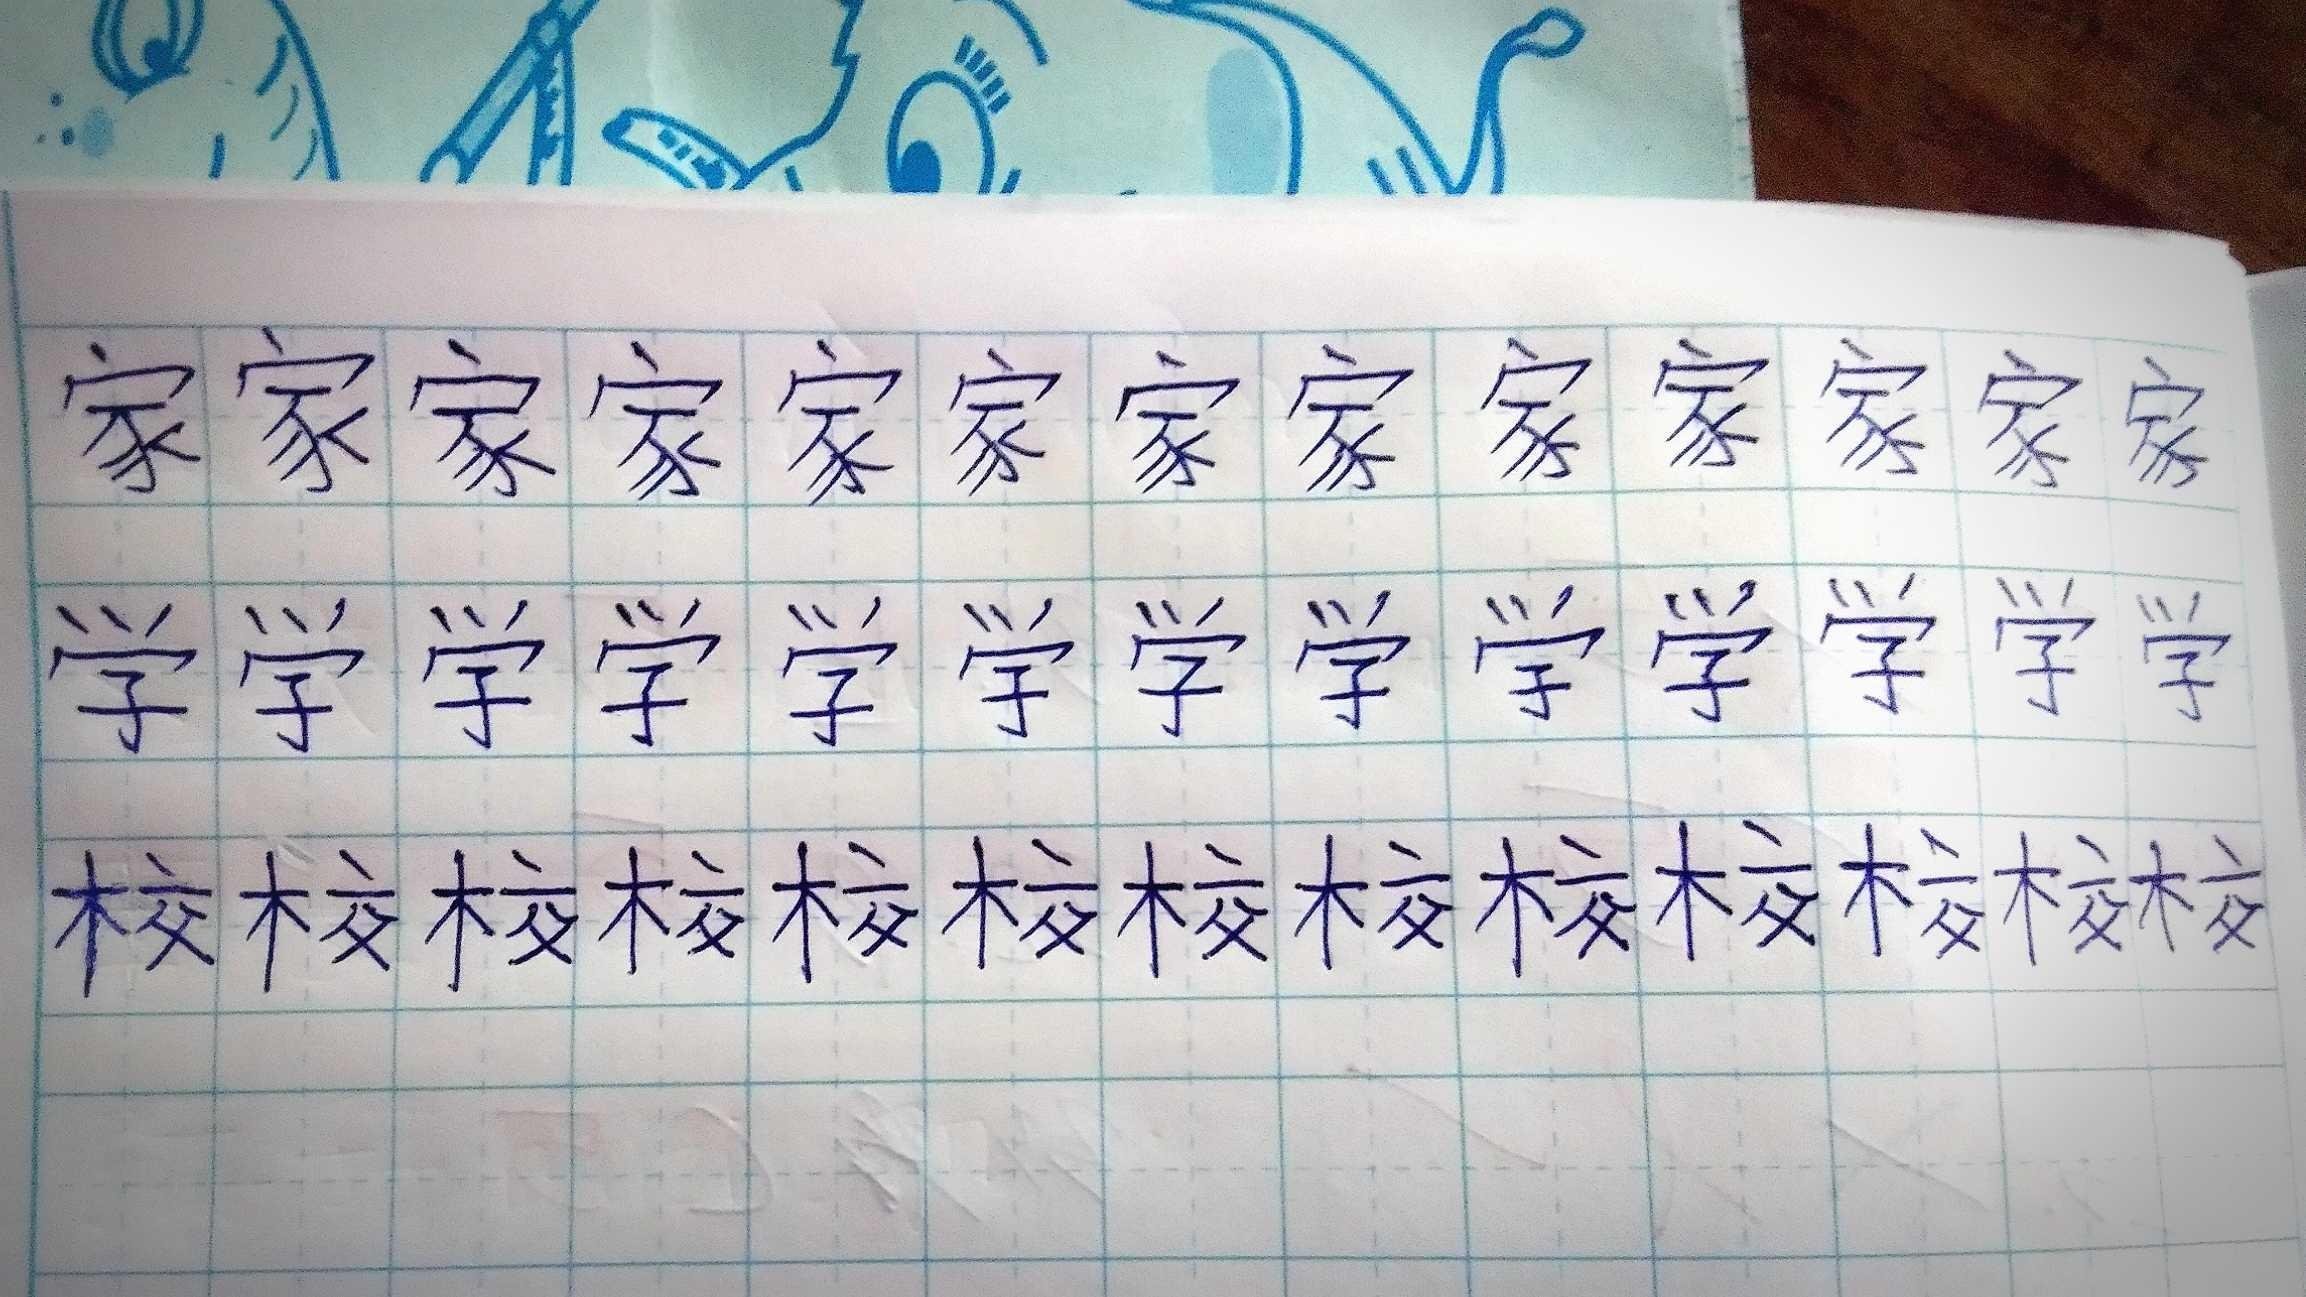 家家家家家家家家家家家家家
学学学学学学学学学学学学学
校校校校校校校校校校校校校